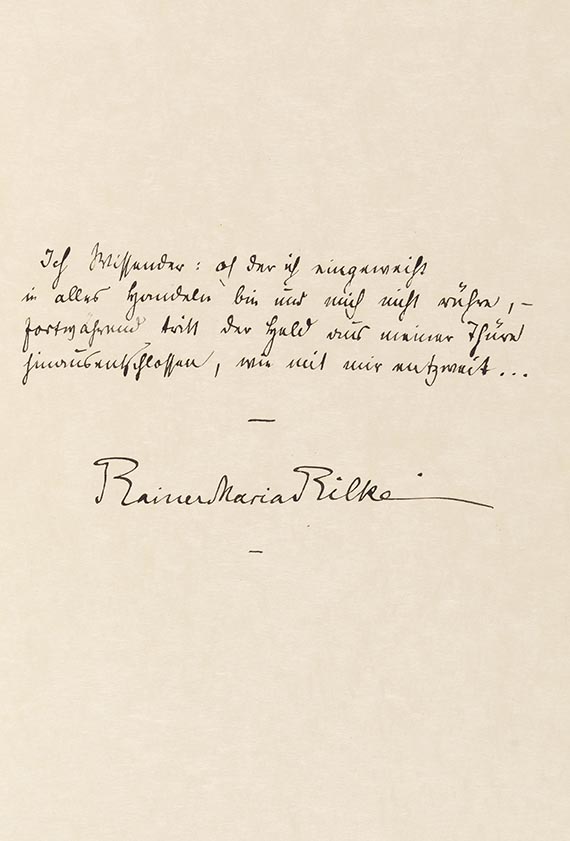 Ich Wissender: oh der ich eingeweiht
in alles Handeln bin und mich nicht rühre, –
fortwährend tritt der Held aus meiner Thüre
hinausentschlossen, wie mit mir entzweit...
—
Rainer Maria Rilke
—